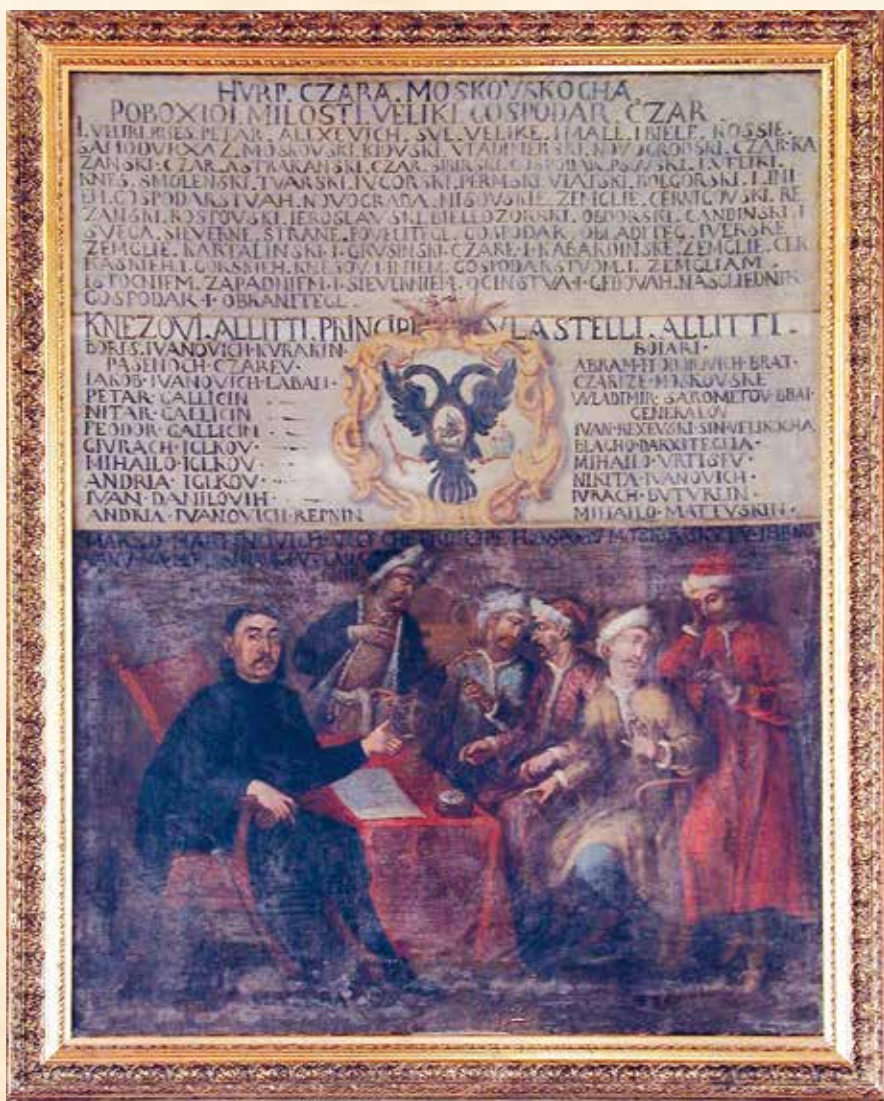 HVRP. CZARA. MOSKOVSKOGHA
POBOXIOI. MILOSTI. VELIKI. GOSPODAR. CZAR
I. VELIKI. KNES. PETAR. ALIXEVICH. SVE. VELIKE. I MALE. I BIELE. ROSSIE.
SAMODVRXAZ. MOSKOVSKI. KIOVSKI. VLADIMERSKI. NOVOGRODSKI. CZAR. KA
ZANSKI. CZAR. ASTRAKANSKI. CZAR. SIBIRSKI. GOSPODAR. PSOVSKI. I VELIKI.
KNES. SMOLENSKI. TVARSKI. IVGORSKI. PERMSKI. VIATSKI. BOLGORSKI. I. INI
EH. GOSPODARSTVAH. NOVOGRADA. NISOVSKIE. ZEMGLIE. CERNIGOVSKI. RE
ZANSKI. ROSTOVSKI. IEROSLAVSKI. BIELLOZORSKI. OBDORSKI. CANDINSKI. I
SVEGA. SIEVERNE. STRANE. POVELITEGL. GOSPODAR. OBLADITEG. IVERSKE
ZEMGLIE. KARTALINSKI. I. GRUSINSKI. CZARE. I. KABARDINSKE. ZEMGLIE. CER
KASKIEH. I. GORSKIEH. KNESOV. I. INIEH. GOSPODARSTVOM. I. ZEMGLIAM.
ISTOCNIEM. ZAPADNIEM. I. SIEVERNIEM. OCINSTVA. I. GEDOVAH. NASGLIEDNIK
GOSPODAR. I. OBRANITEGL.
KNEZOVI. ALLITTI. PRINCIPI
VLASTELLI. ALLITTI.
BORIS. IVANOVICH. KVRAKIN.
PASENOCH. CZAREV.
IAKOB. IVANOVICH. LABAN.
PETAR. GALLICIN
NITAR. GALLICIN
FEODOR. GALLICIN
GIVRACH. IGLKOV.
MIHAILO. IGLKOV.
ANDRIA. IGLKOV.
IVAN. DANILOVIH.
ANDRIA. IVANOVICH. REPNIN
BOIARI.
ABRAM. FEODOROVICH. BRAT.
CZARIZE. MOSKOVSKE
VVLADIMIR. SAROMETOV. BBAI.
GENERALOV
IVAN. REXEVSKI. SIN. VELIKOGHA
BLAGHO. DARXITEGLIA.
MIHAILO. VRTISEV.
NIKITA. IVANOVICH.
IVRACH. BVTVRLIN.
MIHAILO. MATTVSKIN.